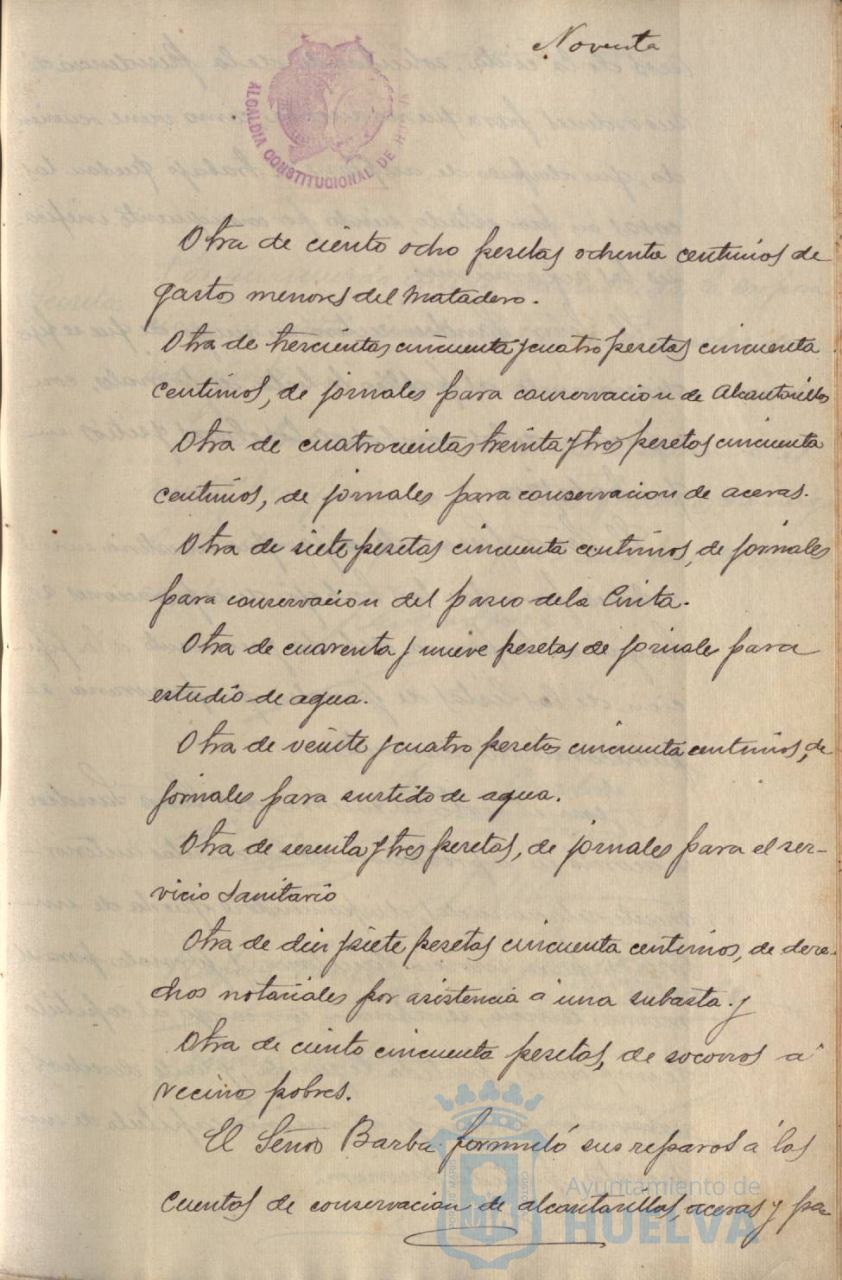 Noventa
ALCALDIA CONSTITUCIONAL DE HUELVA
Otra de ciento ocho pesetas ochenta centimos de
gastos menores del Matadero.
Otra de trescientas cincuenta y cuatro pesetas cincuenta
centimos, de jornales para conservacion de Alcantarillas
Otra de cuatrocientas treinta y tres pesetas cincuenta
centimos, de jornales para conservacion de aceras.
Otra de siete pesetas cincuenta centimos, de jornales
para conservacion del paseo de la Cinta.
Otra de cuarenta y nueve pesetas de jornales para
estudio de agua.
Otra de veinte y cuatro pesetas cincuenta centimos, de
jornales para surtido de agua.
Otra de y tres pesetas, de jornales para el ser-
vicio Sanitario
Otra de diez y siete pesetas cincuenta centimos, de dere-
chos notariales por asistencia á una subasta. y
Otra de ciento cincuenta pesetas, de socorros á
vecinos pobres.
El Señor Barba formuló sus reparos á las
cuentas de conservacion de alcantarillas, aceras y pa-
Ayuntamiento de
HUELVA